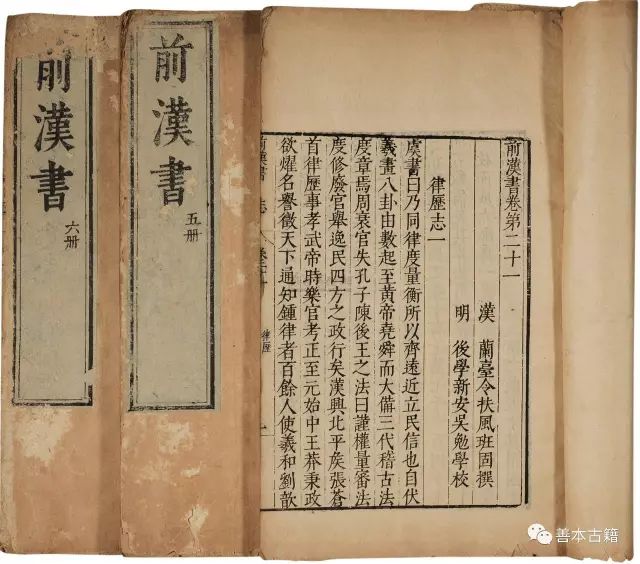 前漢書卷第二十一
漢 蘭臺令扶風班固撰
明 後學新安吳勉學校
律歷志一
虞書曰乃同律度量衡所以齊遠近立民信也自伏
羲畫八卦由數起至黃帝堯舜而大備三代稽古法
度章焉周衰官失孔子陳後王之法曰謹權量審法
度修廢官舉逸民四方之政行矣漢興北平矦張蒼
首律歷事孝武帝時樂官考正至元始中王莽秉政
欲燿名譽徵天下通知鍾律者百餘人使羲和劉歆
前漢書 志 律歷 一
前漢書
五册
前漢書
六册
善本古籍